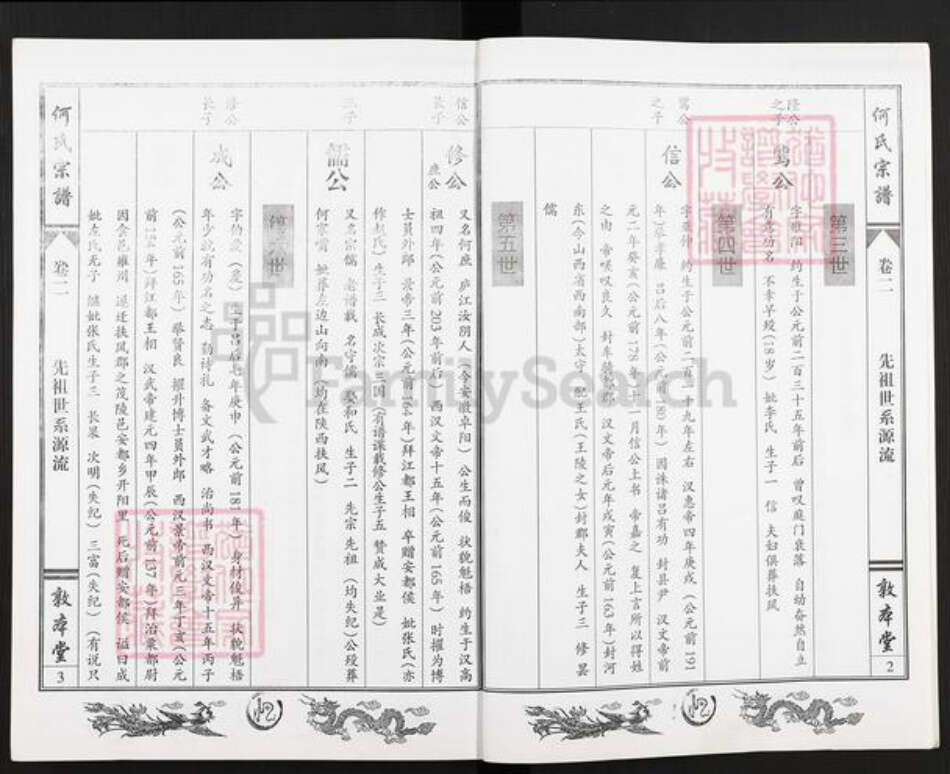 何氏宗譜
卷二
先祖世系源流
敦本堂
2
第三世
隆公
之子
鸾公
字雅阳 约生于公元前二百三十五年前后 曾叹庭门衰落 自动奋然自立
有意功名 不幸早殁(38岁) 妣李氏 生子一 信 夫妇俱葬扶风
第四世
鸾公
之子
信公
字 仲 约生于公元前二百 十九年左右 汉惠帝四年庚戌 (公元前191
年)举孝廉 吕后八年(公元前180年) 因诛诸吕有功 封县尹 汉文帝前
元二年癸亥(公元前178年)十一月信公上书 帝嘉之 复上言所以得姓
之由 帝嗟叹良久 封车骑 郎 汉文帝后元年戊寅(公元前163年)封河
东(今山西省西南部)太守 配王氏(王陵之女)封郡夫人 生子三 修 昙
儒
第五世
信公
长子
修公
庶公
又名何庶 庐江汝阴人(今安徽阜阳) 公生而俊 状貌魁梧 约生于汉高
祖四年(公元前203年前后) 西汉文帝十五年(公元前165年) 时擢为博
士员外郎 景帝三年(公元前154年)拜江都王相 卒赠安都侯 妣张氏(亦
作赵氏) 生子三 长成次宗三国(有谱谍载修公生子五 赞成大业是)
三子
儒公
又名宗儒 老谱载 名字儒 娶和氏 生子二 先宗 先祖 (均失纪)公殁葬
何家嘴 妣葬左边山向南(均在陕西扶风)
第六世
修公
长子
成公
字伯爱 (是) 生于吕后七年庚申 (公元前181年) 身材俊异 状貌魁梧
年少就有功名之志 勤诗礼 备文武才略 治尚书 西汉文帝十五年丙子
(公元前165年) 举贤良 擢升博士员外郎 西汉景帝前元三年丁亥(公元
前154年)拜江都王相 汉武帝建元四年甲辰(公元前137年)拜治粟都尉
因食邑雍州 遂迁扶风郡之茂陵邑安都乡开阳里 死后赠安都侯 谥曰成
妣左氏无子 继妣张氏生子三 长果 次明(失纪) 三富(失纪) (有说只
何氏宗譜
卷二
先祖世系源流
敦本堂
3
FamilySearch